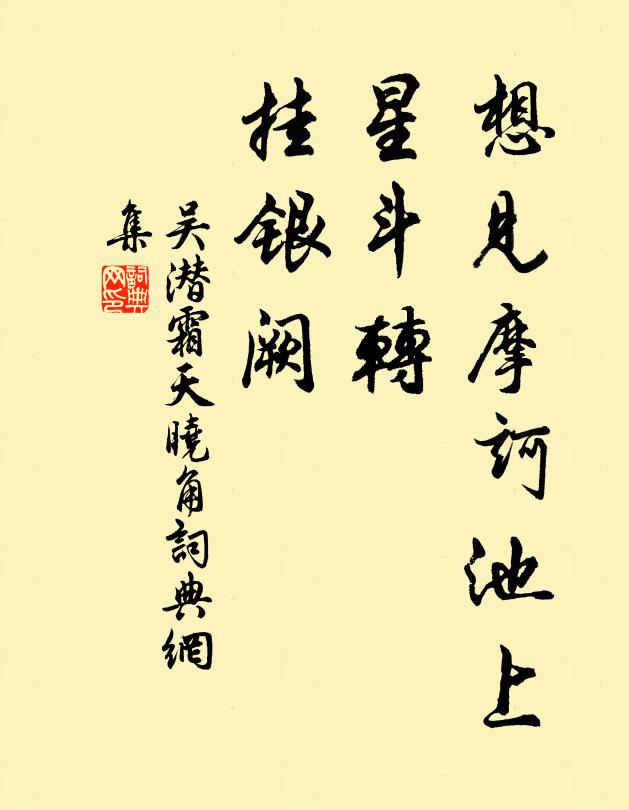 想見摩訶池上
星斗轉
挂銀闕
吴潛霜天曉角詞典網
集
詞典網印